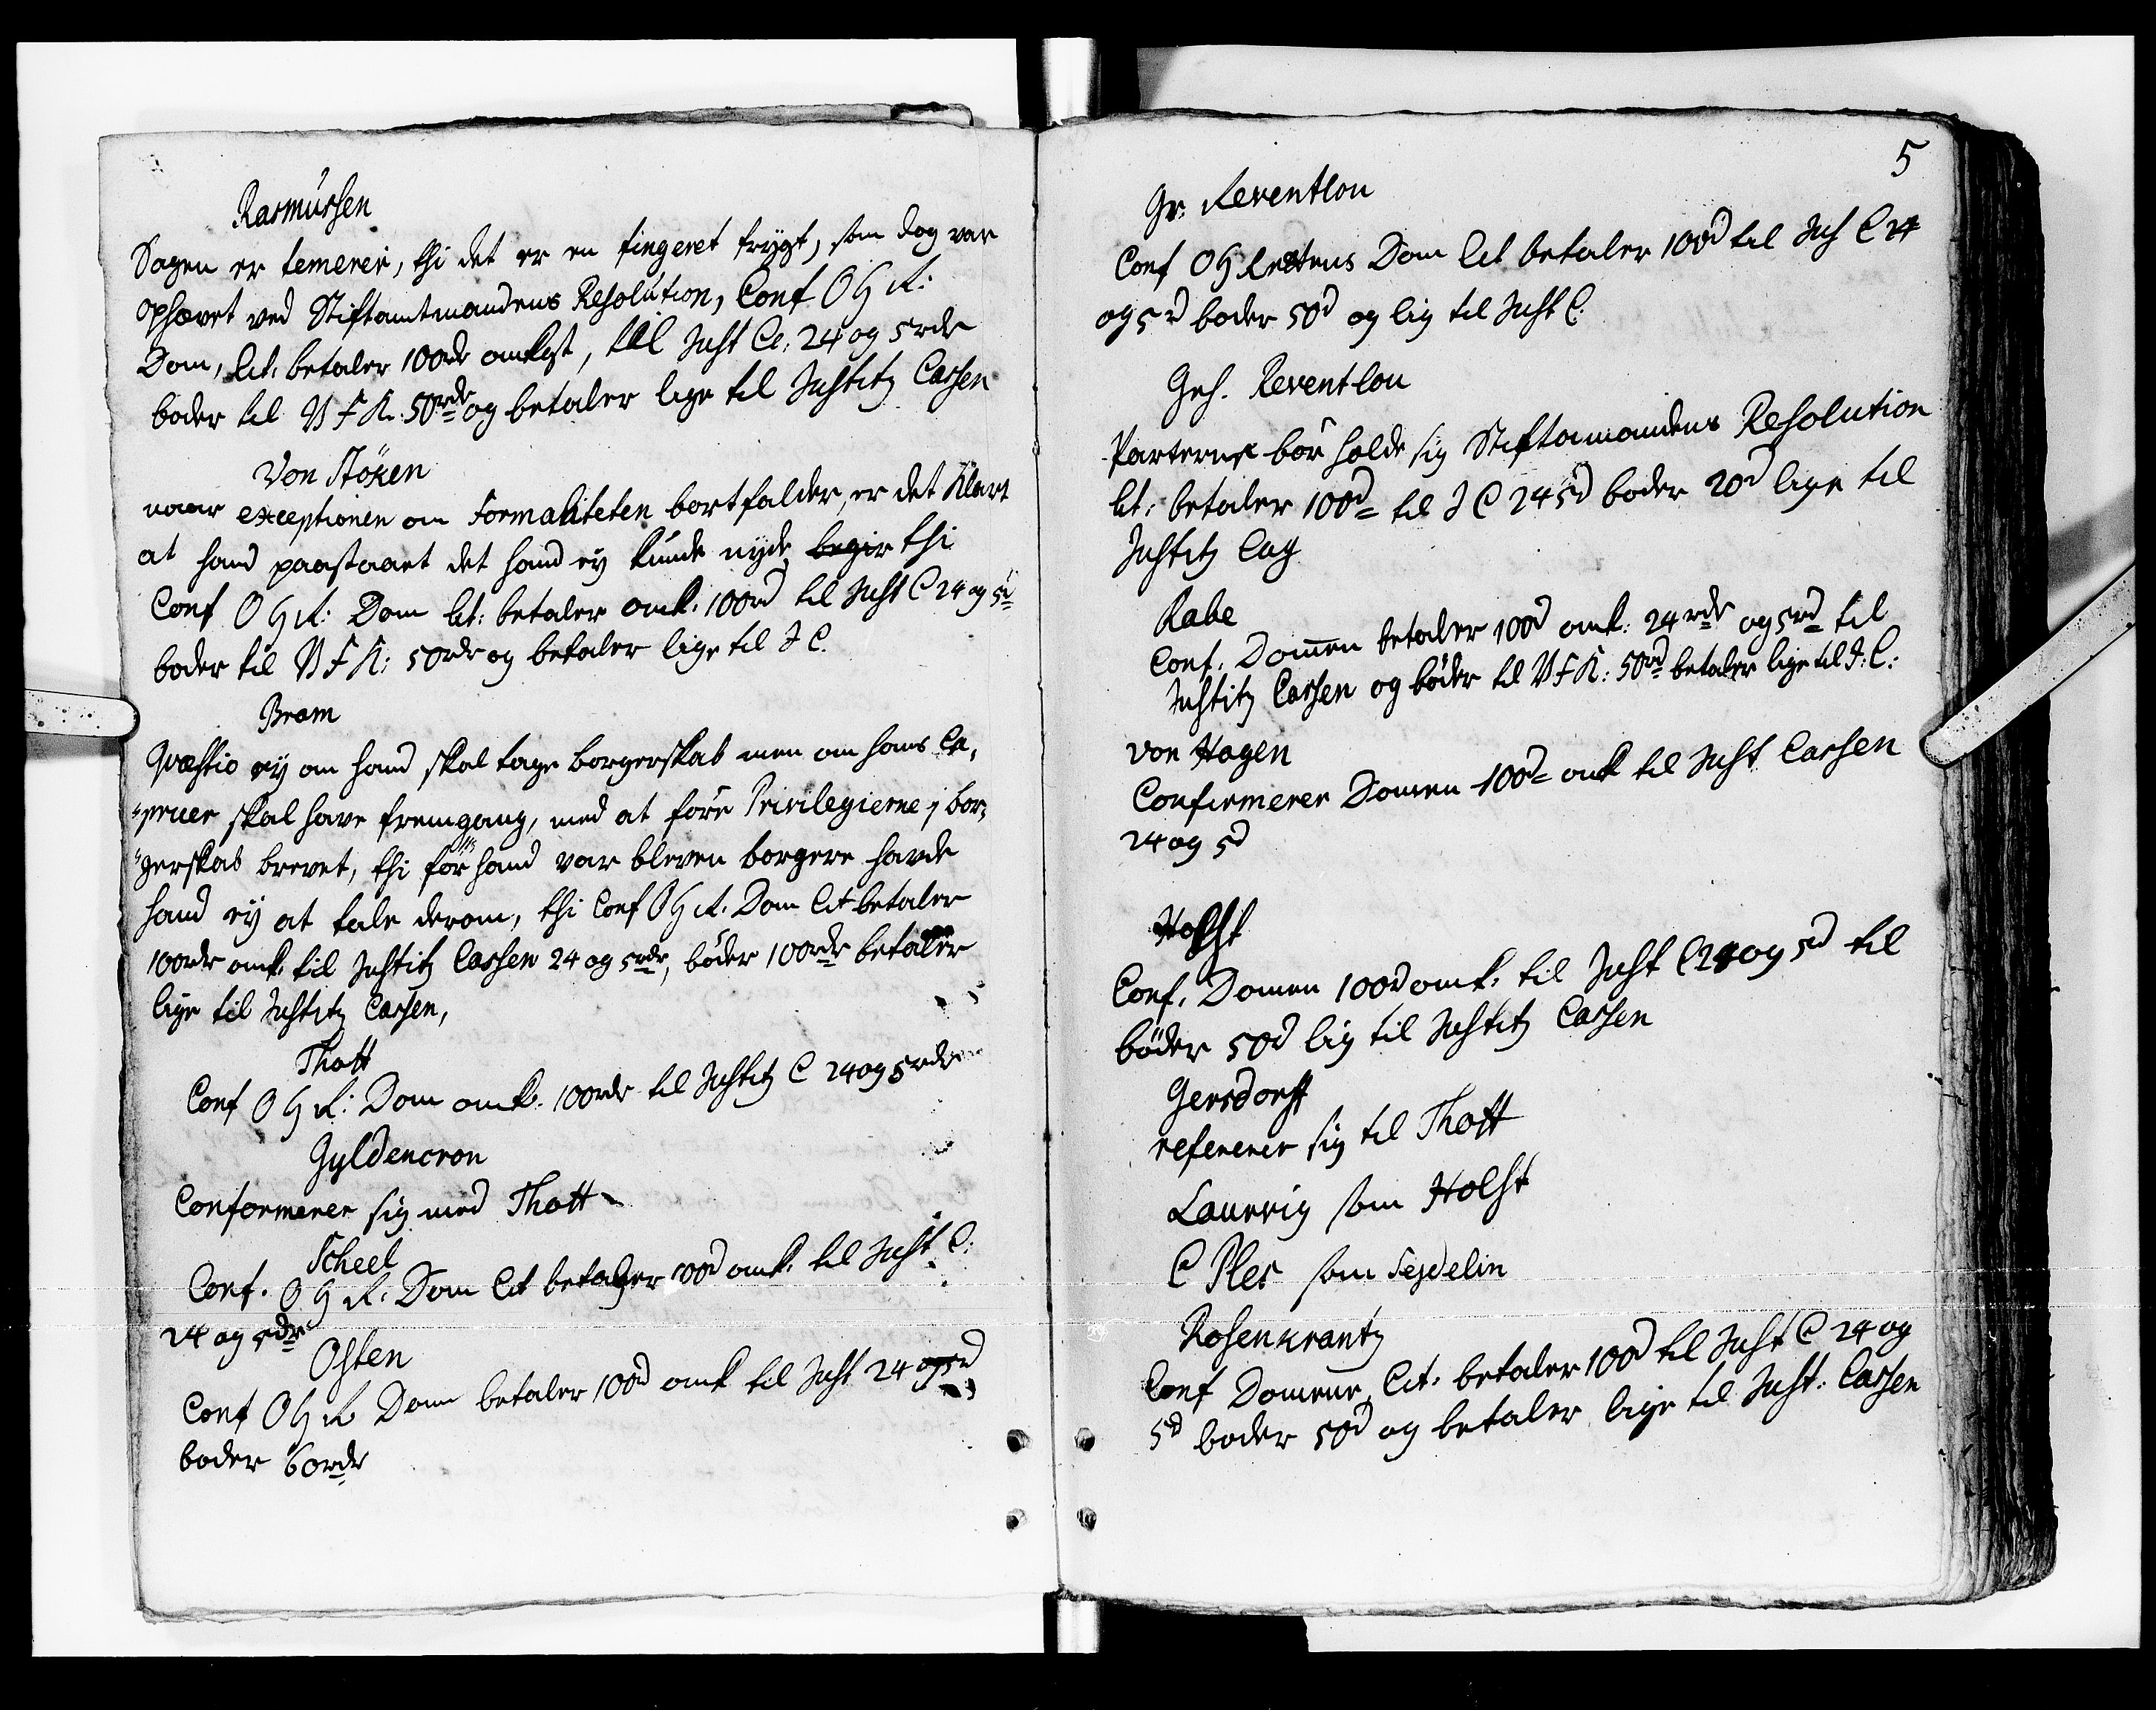 Rasmussen
Sagen er temerer, thi det er en fingeret frygt, som dog var
ophævet ved Stiftamtmandens Resolution, Conf O H R:
Dom, Cit: betaler 100rdr omkost, til Just Ce: 24 og 5rdr
bøder til V F K: 50rdr og betaler lige til Justitz Cassen
Von Stöken
naar exceptionen om Formaliteten bortfalder, er det klart
at hand paastaaet det hand ey kunde nyde thi
Conf O H R: Dom Cit: betaler omk: 100rd til Just C 24 og 5rd
bøder til V F K: 50rdr og betaler lige til J C.
Bram
Qvæstio ey om hand skal tage borgerskab men om hans
skal have fremgang, med at före Privilegierne i bor¬
gerskab brevet, thi för hand var bleven borgere havde
hand ey at tale derom, thi Conf O H R. Dom Cit betaler
100rdr omk. til Justitz Cassen 24 og 5rdr, bøder 100rdr betaler
lige til Justitz Cassen,
Thott
Conf O H R: Dom omk. 100rdr til Justitz C 24 og 5rdr
Gyldencron
Conformerer sig med Thott
Scheel
Conf. O H R: Dom Cit betaler 100d omk. til Just C:
24 og 5dr
Osten
Conf O H R Dom betaler 100d omk til Just 24 og 5rd
bøder 60rdr
5
Gr: Reventlou
Conf O H Rettens Dom Cit betaler 100d til Jus C 24
og 5 d bøder 50d og lig til Just C.
Geh. Reventlou
Parterne bör holde sig Stiftamandens Resolution
Cit: betaler 100d til J C 24 5d bøder 20d lige til
Justitz Cas
Rabe
Conf. Domen betaler 100d omk: 24rdr og 5rd til
Justitz Cassen og bøder til V F K: 50rd betaler lige til J: C:
von Hagen
Confirmerer Domen 100d omk til Just Cassen
24 og 5d
Holst
Conf. Domen 100d omk. til Just C 24 og 5d til
bøder 50d lig til Justitz Cassen
Gersdorff
refererer sig til Thott
Laurvig som Holst
C Ples som Seydelin
Rosenkrantz
Conf Domene Cit. betaler 100d til Just C 24 og
5d bøder 50d og betaler lige til Just: Cassen